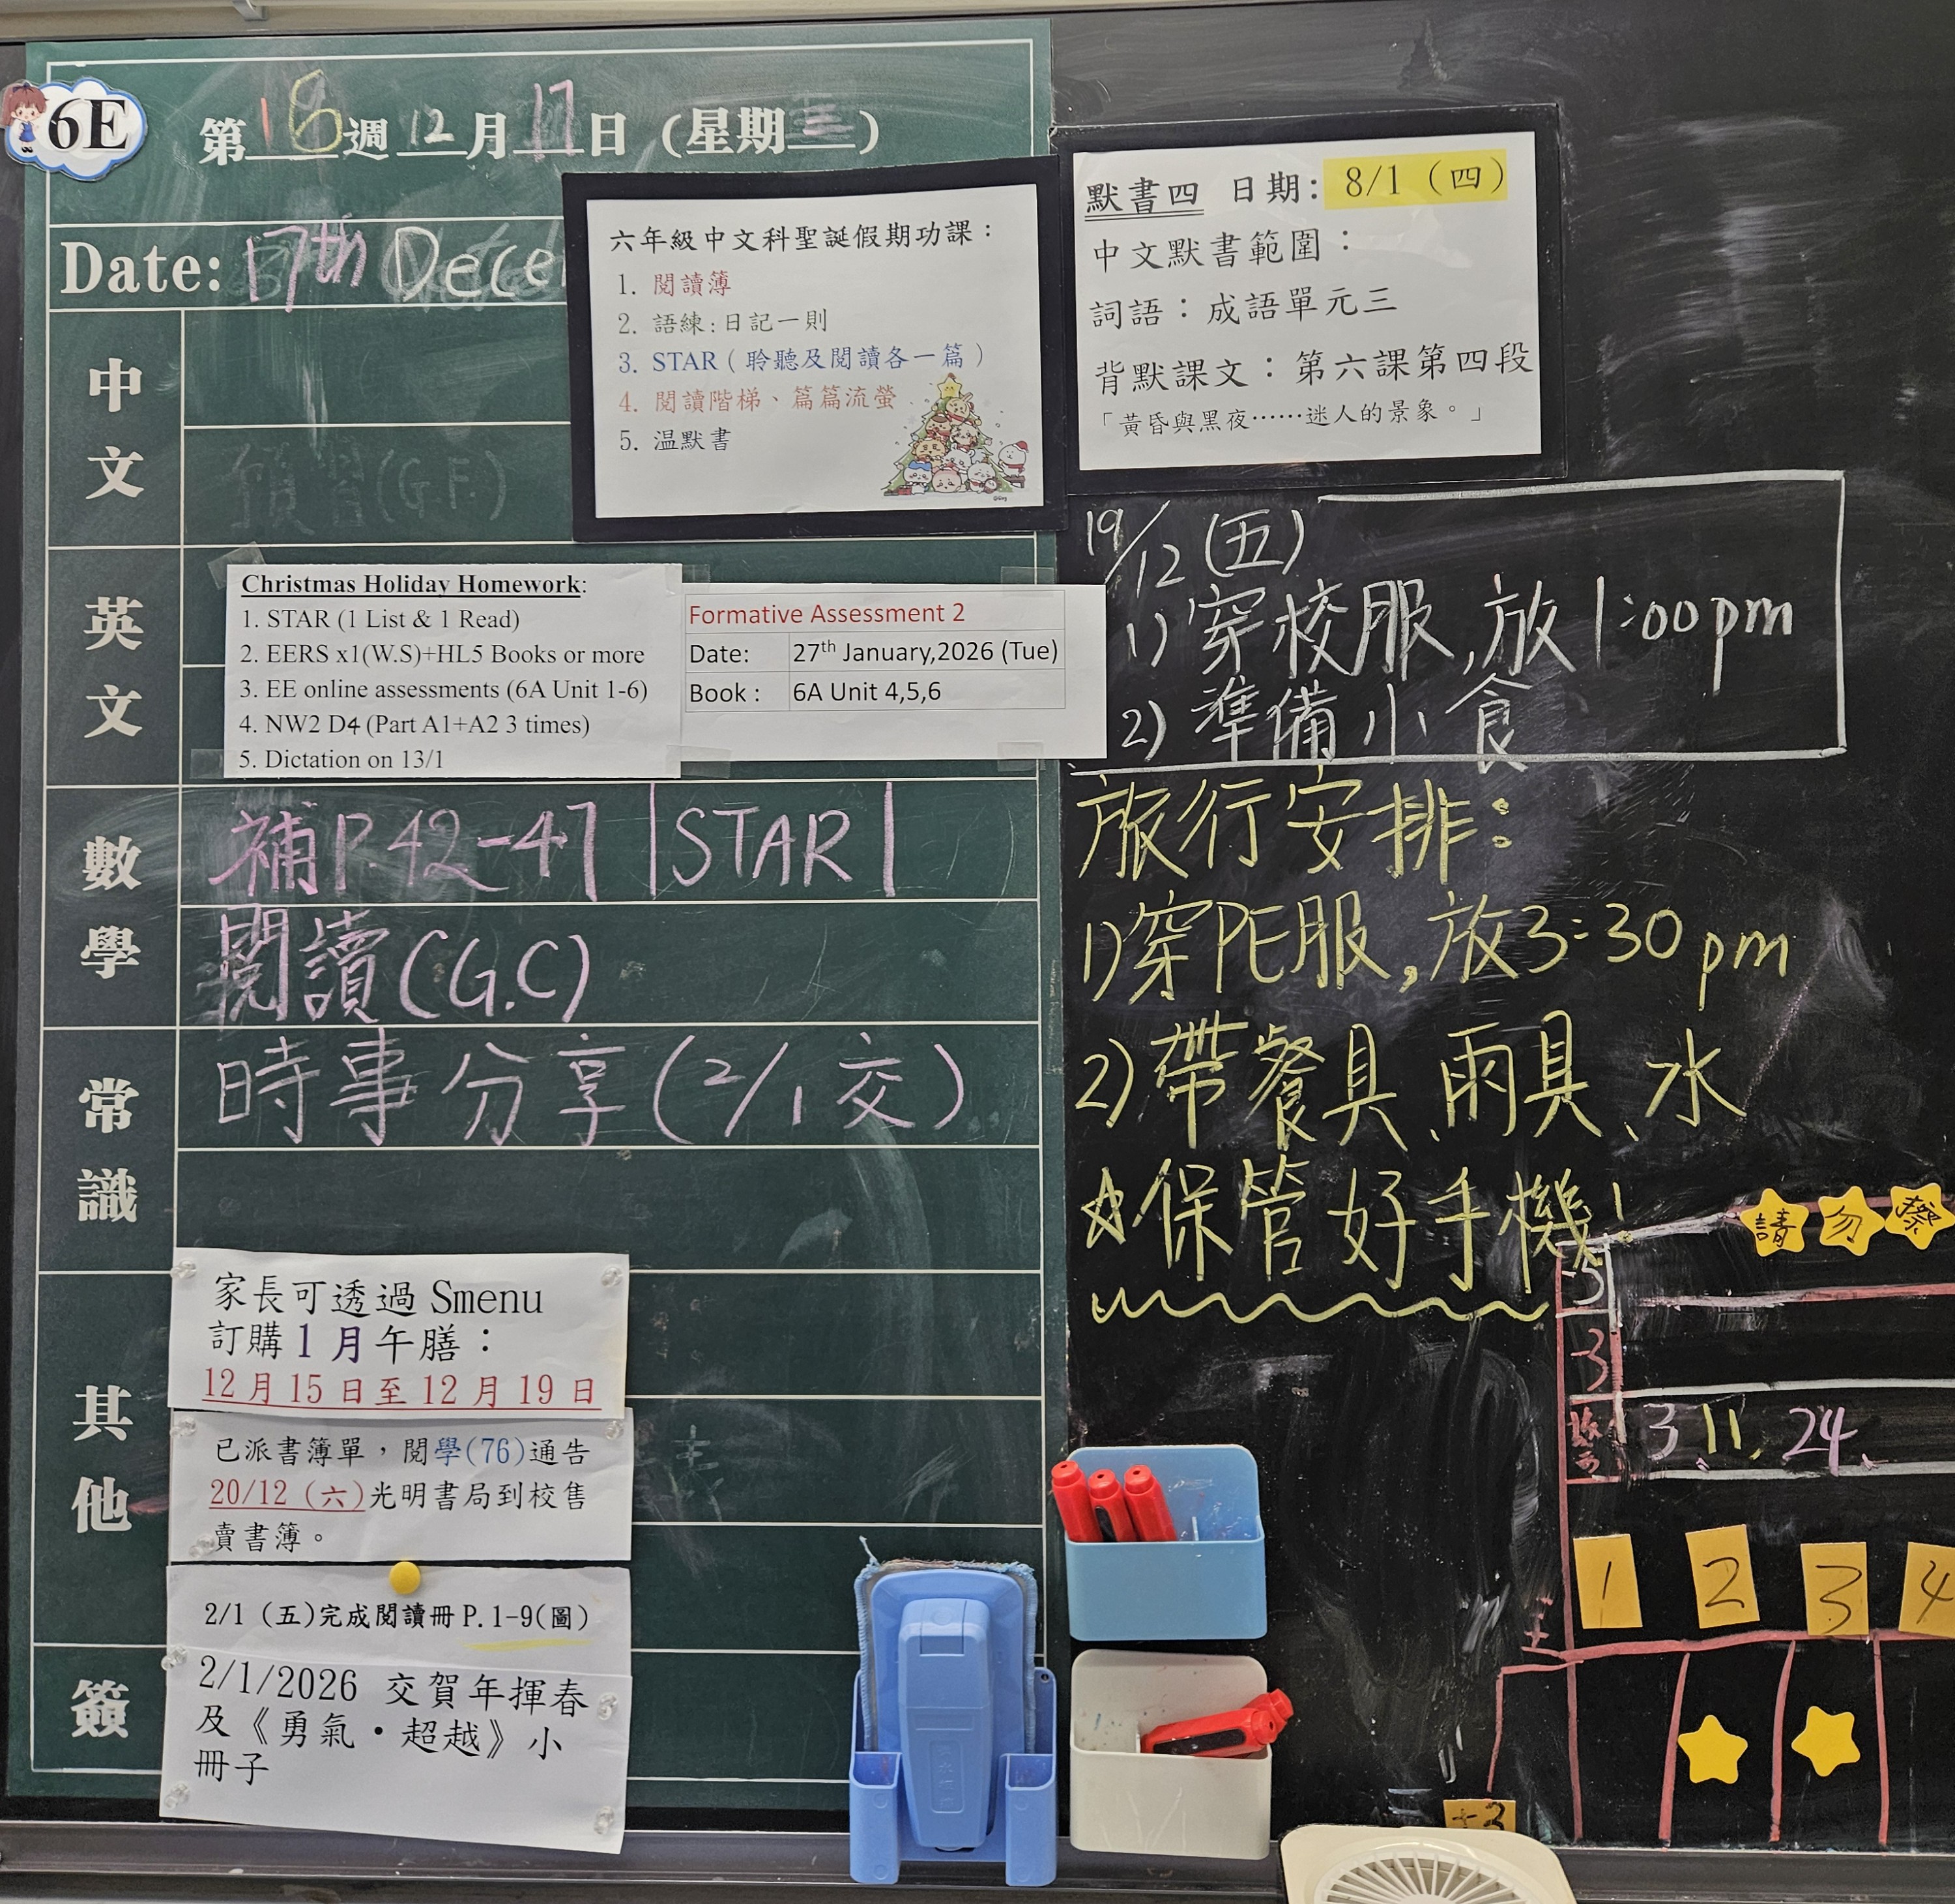 6E
第18週12月17日(星期三)
Date: 17th Dece
中文
預習(G.F.)
六年級中文科聖誕假期功課：
1. 閱讀簿
2. 語練：日記一則
3. STAR（聆聽及閱讀各一篇）
4. 閱讀階梯、篇篇流螢
5. 温默書
默書四 日期: 8/1（四）
中文默書範圍：
詞語：成語單元三
背默課文：第六課第四段
「黃昏與黑夜……迷人的景象。」
英文
Christmas Holiday Homework:
1. STAR (1 List & 1 Read)
2. EERS x1(W.S)+HL5 Books or more
3. EE online assessments (6A Unit 1-6)
4. NW2 D4 (Part A1+A2 3 times)
5. Dictation on 13/1
Formative Assessment 2
Date: 27th January,2026 (Tue)
Book : 6A Unit 4,5,6
19/12(五)
1) 穿校服,放1:00pm
2) 準備小食
數學
補P.42-47|STAR|
閱讀(G.C)
旅行安排:
1)穿PE服,放3:30pm
2)帶餐具、雨具、水
☆保管好手機!
常識
時事分享(2/1交)
其他
家長可透過 Smenu
訂購1月午膳：
12月15日至12月19日
已派書簿單，閱學(76)通告
20/12（六）光明書局到校售
賣書簿。
2/1（五)完成閱讀冊P.1-9(圖)
簽
2/1/2026 交賀年揮春
及《勇氣•超越》小
冊子
請勿擦
-3
3 11. 24.
1 2 3 4
+3